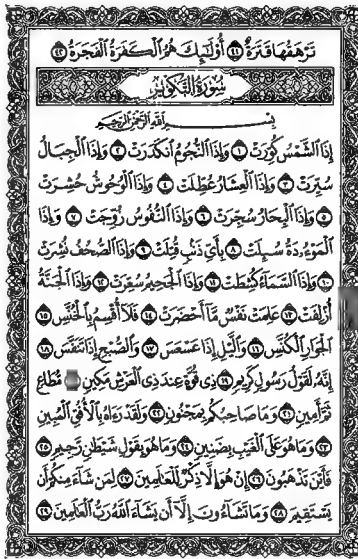 تَرْهَقُهَا قَتَرَةٌ ٤١ أُوْلَٰٓئِكَ هُمُ ٱلْكَفَرَةُ ٱلْفَجَرَةُ ٤٢
سُورَةُ التَّكْوِيرِ
بِسْمِ ٱللَّهِ ٱلرَّحْمَٰنِ ٱلرَّحِيمِ
إِذَا ٱلشَّمْسُ كُوِّرَتْ ١ وَإِذَا ٱلنُّجُومُ ٱنكَدَرَتْ ٢ وَإِذَا ٱلْجِبَالُ
سُيِّرَتْ ٣ وَإِذَا ٱلْعِشَارُ عُطِّلَتْ ٤ وَإِذَا ٱلْوُحُوشُ حُشِرَتْ
٥ وَإِذَا ٱلْبِحَارُ سُجِّرَتْ ٦ وَإِذَا ٱلنُّفُوسُ زُوِّجَتْ ٧ وَإِذَا
ٱلْمَوْءُۥدَةُ سُئِلَتْ ٨ بِأَيِّ ذَنۢبٍ قُتِلَتْ ٩ وَإِذَا ٱلصُّحُفُ نُشِرَتْ
١٠ وَإِذَا ٱلسَّمَآءُ كُشِطَتْ ١١ وَإِذَا ٱلْجَحِيمُ سُعِّرَتْ ١٢ وَإِذَا ٱلْجَنَّةُ
أُزْلِفَتْ ١٣ عَلِمَتْ نَفْسٌ مَّآ أَحْضَرَتْ ١٤ فَلَآ أُقْسِمُ بِٱلْخُنَّسِ ١٥
ٱلْجَوَارِ ٱلْكُنَّسِ ١٦ وَٱلَّيْلِ إِذَا عَسْعَسَ ١٧ وَٱلصُّبْحِ إِذَا تَنَفَّسَ ١٨
إِنَّهُۥ لَقَوْلُ رَسُولٍ كَرِيمٍ ١٩ ذِى قُوَّةٍ عِندَ ذِى ٱلْعَرْشِ مَكِينٍ مُّطَاعٍ
ثَمَّ أَمِينٍ ٢١ وَمَا صَاحِبُكُم بِمَجْنُونٍ ٢٢ وَلَقَدْ رَءَاهُ بِٱلْأُفُقِ ٱلْمُبِينِ
٢٣ وَمَا هُوَ عَلَى ٱلْغَيْبِ بِضَنِينٍ ٢٤ وَمَا هُوَ بِقَوْلِ شَيْطَٰنٍ رَّجِيمٍ ٢٥
فَأَيْنَ تَذْهَبُونَ ٢٦ إِنْ هُوَ إِلَّا ذِكْرٌ لِّلْعَٰلَمِينَ ٢٧ لِمَن شَآءَ مِنكُمْ أَن
يَسْتَقِيمَ ٢٨ وَمَا تَشَآءُونَ إِلَّآ أَن يَشَآءَ ٱللَّهُ رَبُّ ٱلْعَٰلَمِينَ ٢٩